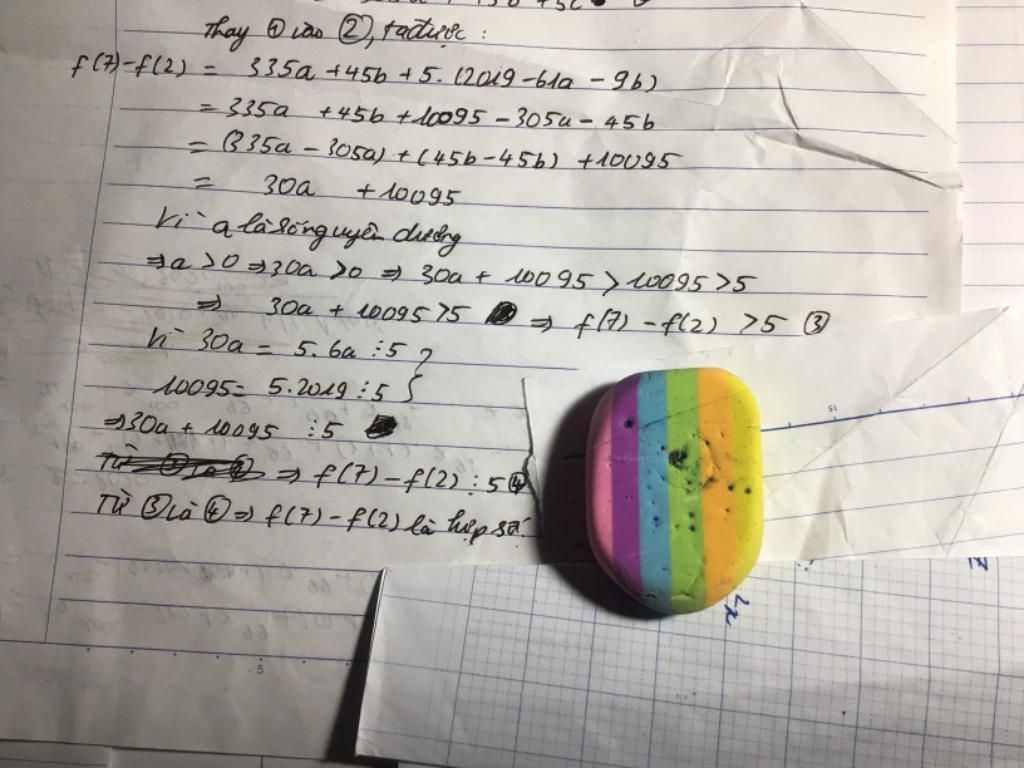 Thay ① vào ②, ta được:
f(7)-f(2) = 335a + 45b + 5.(2019 - 61a - 9b)
= 335a + 45b + 10095 - 305a - 45b
= (335a - 305a) + (45b - 45b) + 10095
= 30a + 10095
Vì a là số nguyên dương
⇒ a > 0 ⇒ 30a > 0 ⇒ 30a + 10095 > 10095 > 5
⇒ 30a + 10095 > 5 ⇒ f(7) - f(2) > 5 ③
Vì 30a = 5.6a ⋮ 5 }
10095 = 5.2019 ⋮ 5 }
⇒ 30a + 10095 ⋮ 5
⇒ f(7) - f(2) ⋮ 5 ④
Từ ③ và ④ ⇒ f(7) - f(2) là hợp số.
15
5